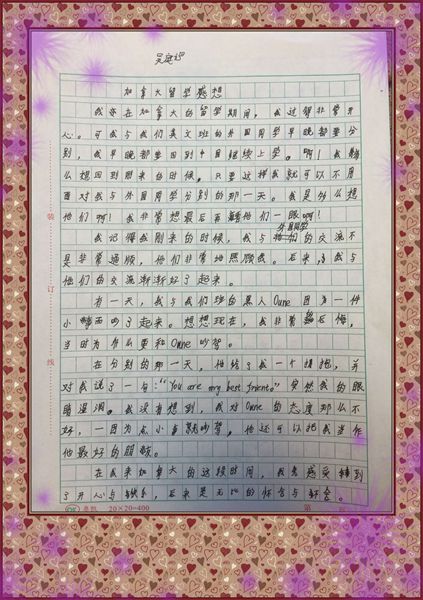 吴庭婷
加拿大留学感想
我在加拿大的留学期间，我过得非常开
心。可我与我们英文班的外国同学早晚都要分
别，我早晚都要回到中国继续上学。啊！我多
么想回到刚来的时候，只要这样我就可以不用
面对我与外国同学分别的那一天。我是多么想
他们啊！我非常想最后再瞧他们一眼啊！
外国同学
我记得我刚来的时候，我与他们的交流不
是非常通顺，他们非常地照顾我。后来，我与
他们的交流渐渐好了起来。
有一天，我与我们班的黑人Owne因为一件
小事而吵了起来。想想现在，我非常后悔，
当时为什么要和Owne吵架。
在分别的那一天，他给了我一个拥抱，并
对我说了一句："You are my best friend。"突然我的眼
睛湿润。我没有想到，我对Owne的态度那么不
好，一因为点小事就吵架，他还可以把我当作
他最好的朋友。
在我来加拿大的这段时间，我感受到
了开心与快乐，后来是无比的怀念与不舍。
装
订
线
20×20=400
第